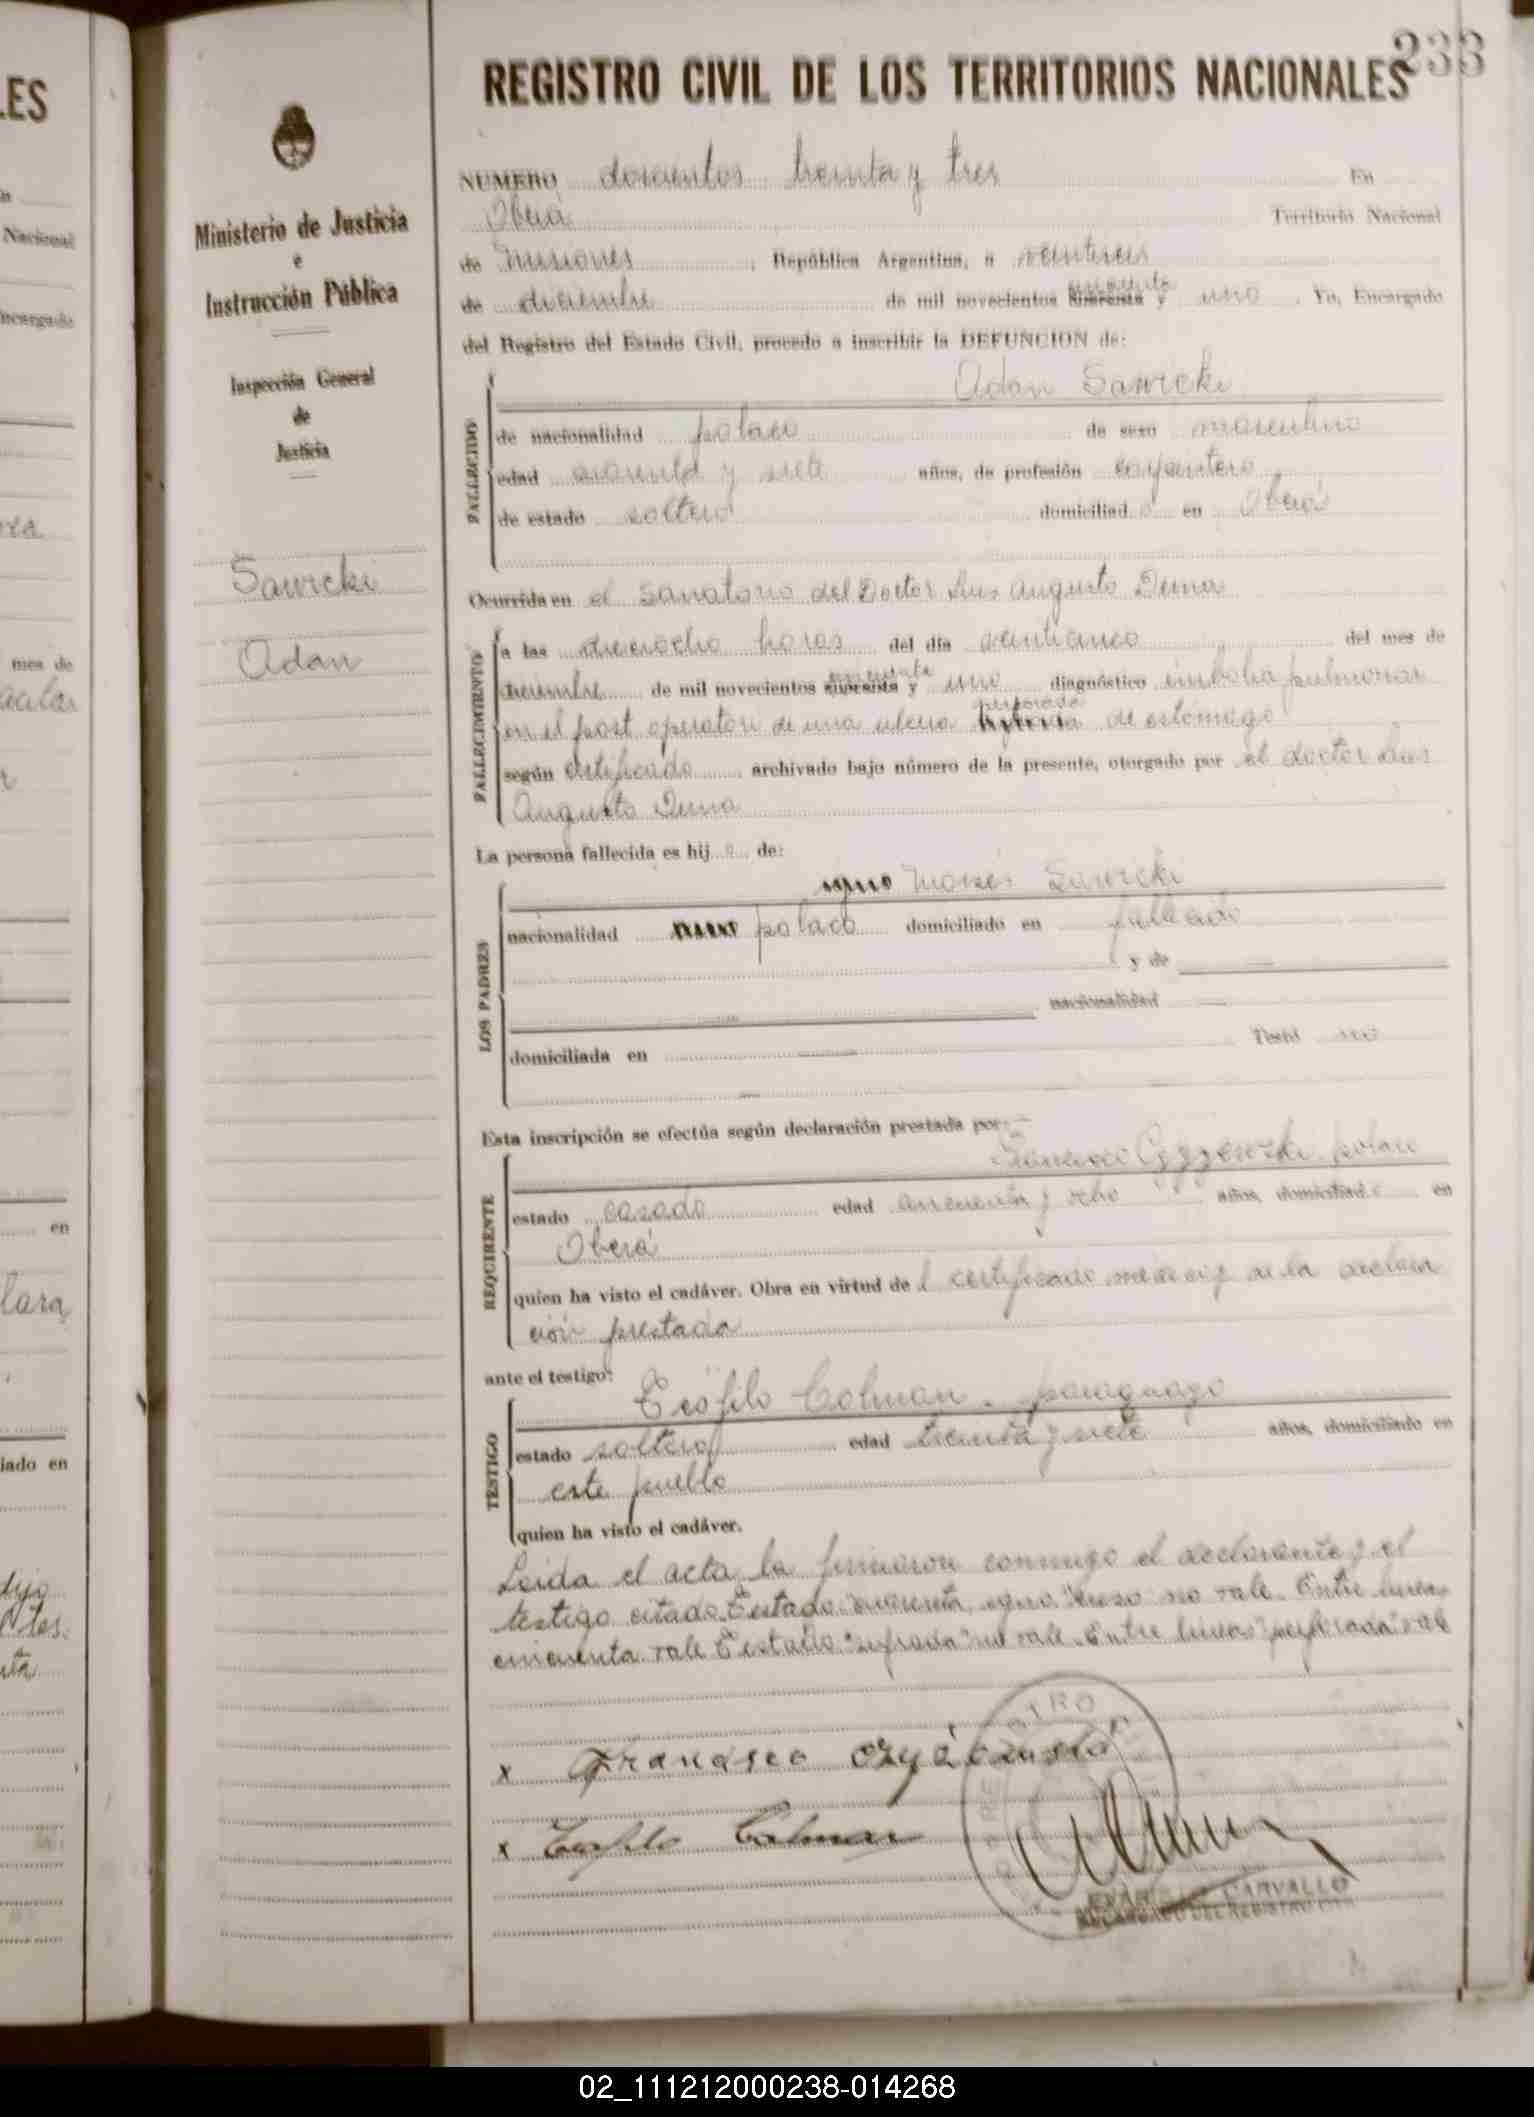 233
REGISTRO CIVIL DE LOS TERRITORIOS NACIONALES
Ministerio de Justicia
e
Instrucción Pública
Inspección General
de
Justicia
Sawicki
Adan
NUMERO doscientos treinta y tres En
Oberá Territorio Nacional
de Misiones, República Argentina, a veintiseis
de diciembre de mil novecientos cincuenta y uno. Yo, Encargado
del Registro del Estado Civil, procedo a inscribir la DEFUNCION de:
Adan Sawicki
FALLECIDO
de nacionalidad polaco de sexo masculino
edad cuarenta y siete años, de profesión carpintero
de estado soltero domiciliado en Oberá
Ocurrida en el Sanatorio del Doctor Luis Augusto
FALLECIMIENTO
a las dieciocho horas del día veinticinco del mes de
diciembre de mil novecientos cincuenta y uno diagnóstico embolia pulmonar
en el post operatori de una ulcera perforada de estomago
según certificado archivado bajo número de la presente, otorgado por el doctor Luis
Augusto
La persona fallecida es hijo de:
LOS PADRES
Moises Sawicki
nacionalidad polaco domiciliado en fallecido
y de
nacionalidad
domiciliada en Testó no
Esta inscripción se efectúa según declaración prestada por:
REQUIRENTE
Francisco polaco
estado casado edad cincuenta y ocho años, domiciliado en
Oberá
quien ha visto el cadáver. Obra en virtud del certificado medico y de la declara
ción prestada
ante el testigo:
TESTIGO
Teófilo Colman. paraguayo
estado soltero edad treinta y siete años, domiciliado en
este pueblo
quien ha visto el cadáver.
Leida el acta la firmaron conmigo el declarante y el
testigo citado. Testado: no vale. Entre lineas
cincuenta vale Testado no vale. Entre lineas "perforada" vale
x Francisco
x Teofilo Colman
CARVALLO
ENCARGADO DEL REGISTRO CIVIL
02_111212000238-014268